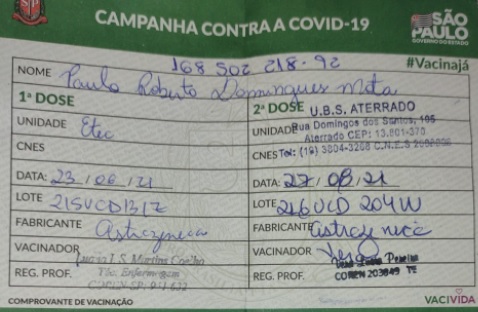 CAMPANHA CONTRA A COVID-19
SÃO PAULO
GOVERNO DO ESTADO
168 502 218-92
#Vacinajá
NOME Paulo Roberto Domingues Mota
1ª DOSE
UNIDADE Etec
CNES
DATA: 23/06/21
LOTE 215VCD131Z
FABRICANTE Astrazeneca
VACINADOR
Lucia I. S. Martins Coelho
REG. PROF. Téc. Enfermagem
COREN-SP
2ª DOSE U.B.S. ATERRADO
UNIDADE Rua Domingos dos Santos, 105
Aterrado CEP: 13.801-370
CNES Tel: (19) 3804-3268 C.N.E.S
DATA: 27/08/21
LOTE 216VCD204W
FABRICANTE Astrazenece
VACINADOR
Pereira
REG. PROF. COREN 203849 TE
COMPROVANTE DE VACINAÇÃO
VACIVIDA